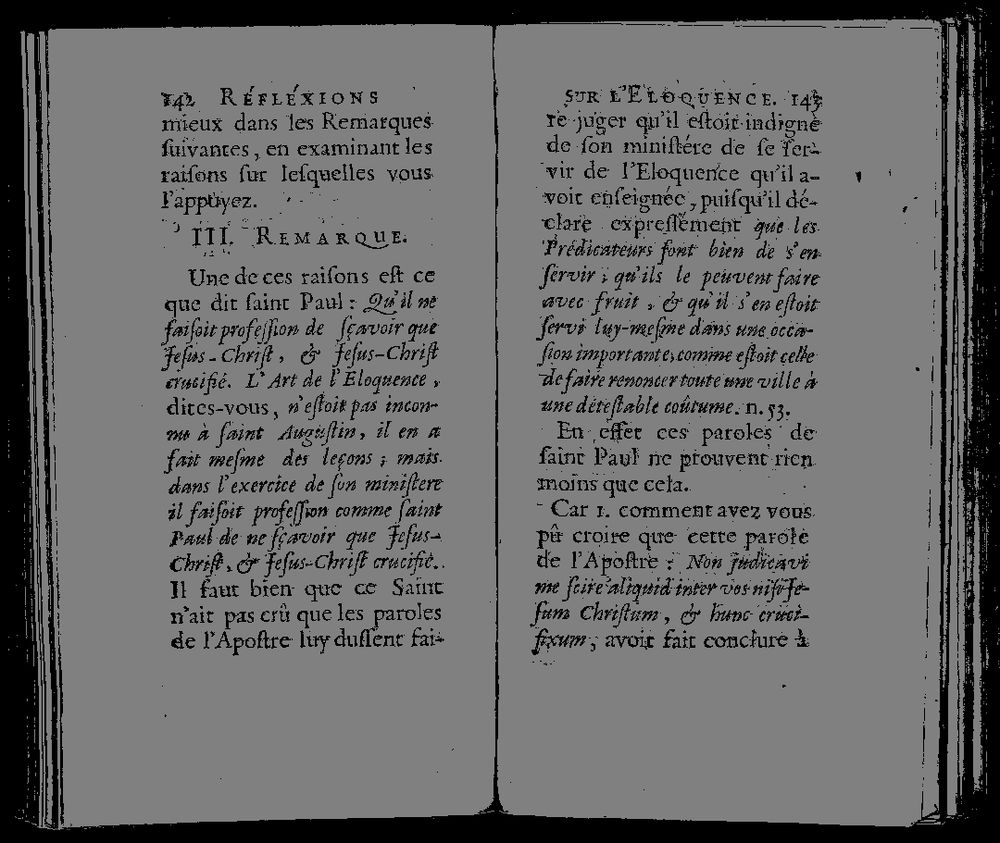 142 RÉFLÉXIONS
mieux dans les Remarques
suivantes, en examinant les
raisons sur lesquelles vous
l'appuyez.
III. REMARQUE.
Une de ces raisons est ce
que dit saint Paul : Qu'il ne
faisoit profession de sçavoir que
Jesus-Christ, & Jesus-Christ
crucifié. L'Art de l'Eloquence,
dites-vous, n'estoit pas incon-
nu à saint Augustin, il en a
fait mesme des leçons ; mais
dans l'exercice de son ministere
il faisoit profession comme saint
Paul de ne sçavoir que Jesus-
Christ, & Jesus-Christ crucifié.
Il faut bien que ce Saint
n'ait pas crû que les paroles
de l'Apostre luy dussent fai-
SUR L'ELOQUENCE. 143
re juger qu'il estoit indigne
de son ministére de se ser-
vir de l'Eloquence qu'il a-
voit enseignée, puisqu'il dé-
clare expressément que les
Prédicateurs font bien de s'en
servir ; qu'ils le peuvent faire
avec fruit, & qu'il s'en estoit
servi luy-mesme dans une occa-
sion importante, comme estoit celle
de faire renoncer toute une ville à
une détestable coûtume. n. 53.
En effet ces paroles de
saint Paul ne prouvent rien
moins que cela.
Car 1. comment avez vous
pû croire que cette parole
de l'Apostre : Non judicavi
me scire aliquid inter vos nisi Je-
sum Christum, & hunc cruci-
fixum, avoit fait conclure à